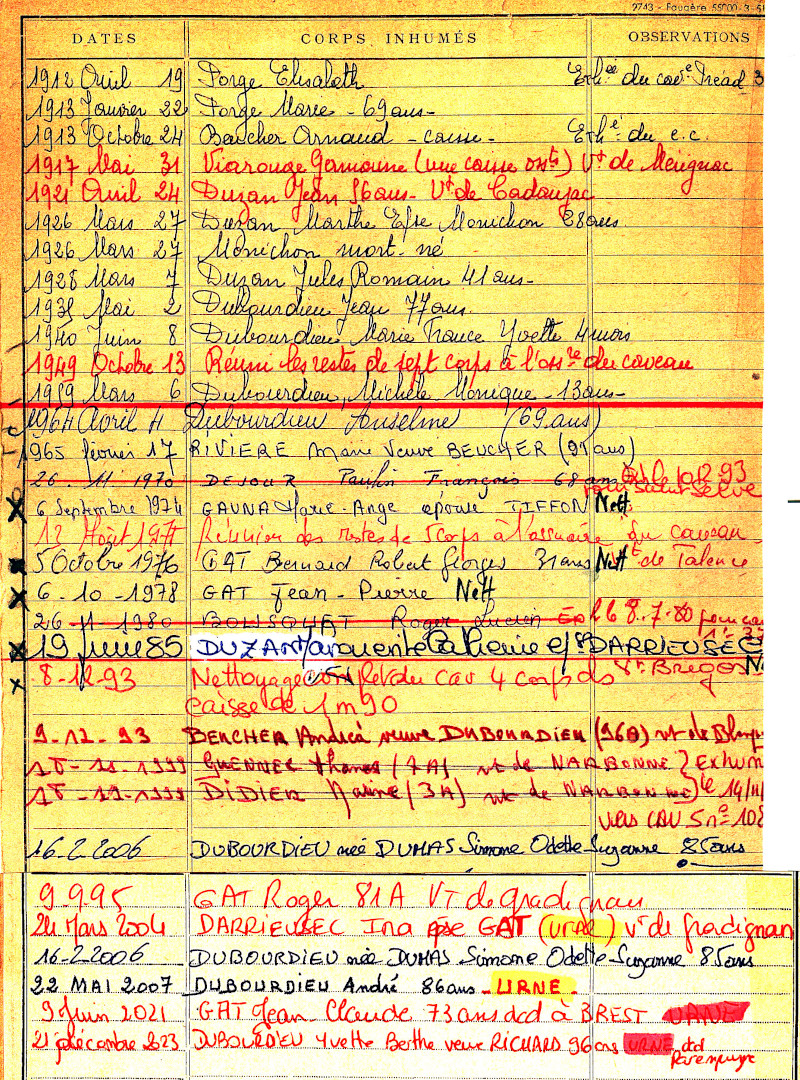 2743 - Fougère 55000 - 3-51
DATES CORPS INHUMÉS OBSERVATIONS
1912 Avril 19 Forge Elisabeth Exh.ée du cav.e
1913 Janvier 22 Forge Marie - 69 ans -
1913 Octobre 24 Beucher Arnaud - caisse - Exh.é du c.c.
1917 Mai 31 Viarouge Germaine (une caisse osts) Vt de Mérignac
1921 Avril 24 Duzan Jean 56 ans - Vt de Cadaujac
1926 Mars 27 Duzan Marthe Epse Monichon 28 ans
1926 Mars 27 Monichon mort-né
1928 Mars 7 Duzan Jules Romain 41 ans -
1935 Mai 2 Dubourdieu Jean 77 ans
1940 Juin 8 Dubourdieu Marie France Yvette 4 mois
1949 Octobre 13 Réuni les restes de sept corps à l'oss.re du caveau
1959 Mars 6 Dubourdieu, Michèle Monique - 13 ans -
1964 Avril 4 Dubourdieu Anselme (69 ans)
1965 février 17 RIVIERE Marie Veuve BEUCHER (91 ans)
26. 11. 1970 DEJOUR Paulin François 68 ans 10.12.93
6 Septembre 1974 GAUNA Marie-Ange épouse TIFFON Nett
13 Août 1977 Réunion des restes de 5 corps à l'ossuaire du caveau
5 Octobre 1976 GAT Bernard Robert Georges 31 ans Nett Vt de Talence
6 - 10 - 1978 GAT Jean - Pierre Nett
26 - 11 - 1980 BOUSQUAT Roger Lucien Exh le 8.7.80 pour cav
19 Juin 85 DUZAN Marguerite Catherine ep DARRIEUSEC
8-12-93 Nettoyage Rel du Cav 4 corps ds Vt. Bregos
caisse de 1m90
9-12-93 BEUCHER Andréa veuve DUBOURDIEU (96A) vt de
18-11-1999 GUENNEC Thomas (7A) vt de NARBONNE } Exhum
18-11-1999 DIDIER Marine (3A) vt de NARBONNE le 14/11/
vers CAV S nº 108
16.2.2006 DUBOURDIEU née DUMAS Simone Odette Suzanne 85 ans
9.9.95 GAT Roger 81A VT de gradignan
24 Mars 2004 DARRIEUSEC Ina épse GAT (URNE) vt de gradignan
16-2-2006 DUBOURDIEU née DUMAS Simone Odette Suzanne 85 ans
22 MAI 2007 DUBOURDIEU André 86 ans - URNE -
9 Juin 2021 GAT Jean-Claude 73 ans dcd à BREST URNE
21 décembre 2023 DUBOURDIEU Yvette Berthe veuve RICHARD 96 ans URNE dcd
Parempuyre